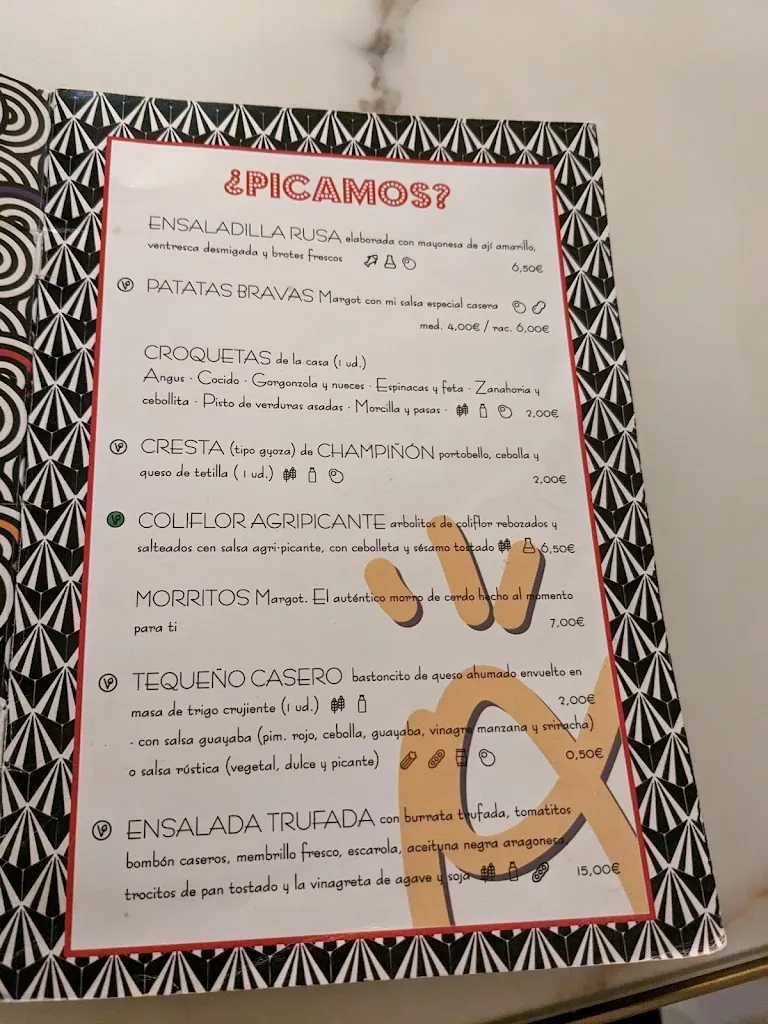 ¿PICAMOS?
ENSALADILLA RUSA elaborada con mayonesa de ají amarillo,
ventresca desmigada y brotes frescos 6,50€
PATATAS BRAVAS Margot con mi salsa especial casera
med. 4,00€ / rac. 6,00€
CROQUETAS de la casa (1 ud.)
Angus · Cocido · Gorgonzola y nueces · Espinacas y feta · Zanahoria y
cebollita · Pisto de verduras asadas · Morcilla y pasas · 2,00€
CRESTA (tipo gyoza) de CHAMPIÑÓN portobello, cebolla y
queso de tetilla (1 ud.) 2,00€
COLIFLOR AGRIPICANTE arbolitos de coliflor rebozados y
salteados cen salsa agri-picante, con cebolleta y sésamo tostado 6,50€
MORRITOS Margot. El auténtico morro de cerdo hecho al momento
para ti 7,00€
TEQUEÑO CASERO bastoncito de queso ahumado envuelto en
masa de trigo crujiente (1 ud.) 2,00€
- con salsa guayaba (pim. rojo, cebolla, guayaba, vinagre manzana y sriracha)
o salsa rústica (vegetal, dulce y picante) 0,50€
ENSALADA TRUFADA con burrata trufada, tomatitos
bombón caseros, membrillo fresco, escarola, aceituna negra aragonesa,
trocitos de pan tostado y la vinagreta de agave y soja 15,00€